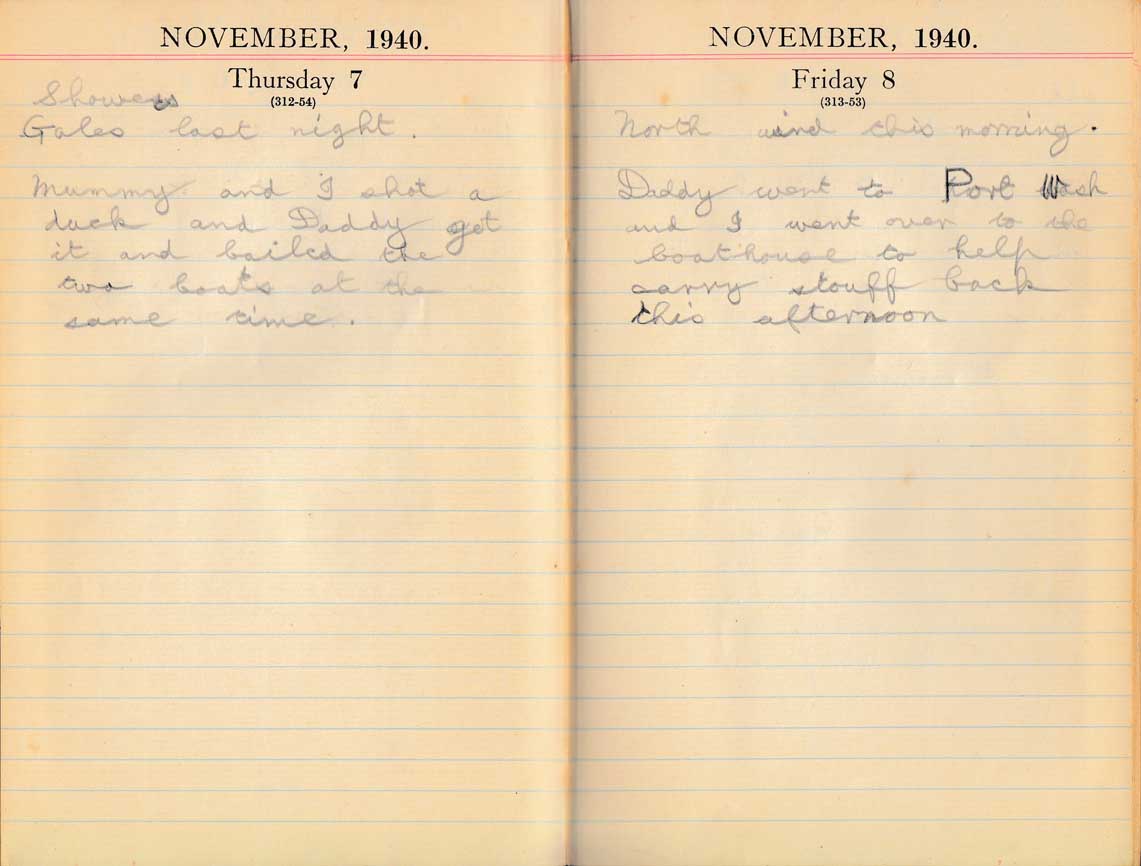 NOVEMBER, 1940.
Thursday 7
(312-54)
Showers
Gales last night.
Mummy and I shot a
duck and Daddy got
it and bailed the
two boats at the
same time.
NOVEMBER, 1940.
Friday 8
(313-53)
North wind this morning.
Daddy went to Port Wash
and I went over to the
boathouse to help
carry stouff back
this afternoon